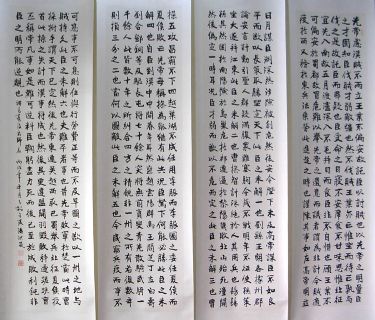 先帝慮漢賊不兩立王業不偏安故託臣以討賊也以先帝之明量臣
之才固知臣伐賊才弱敵強也然不伐賊王業亦亡惟坐而待亡孰與
伐之是故託臣而弗疑也臣受命之日寢不安席食不甘味思惟北征
宜先入南故五月渡瀘深入不毛并日而食臣非不自惜也顧王業不
可偏安於蜀都故冒危難以奉先帝之遺意而議者謂為非計今賊適
疲於西又務於東兵法乘勞此進趨之時也謹陳其事如左高帝明並
日月謀臣淵深然涉險被創危然後安今陛下未及高帝謀臣不如良
平而欲以長策取勝坐定天下此臣之未解一也劉繇王朗各據州郡
論安言計動引聖人群疑滿腹眾難塞胸今歲不戰明年不征使孫策
坐大遂并江東此臣之未解二也曹操智計殊絕於人其用兵也彷彿孫吳
然困於南陽險於烏巢危於祁連偪於黎陽幾敗北山殆死潼關
然後偽定一時爾況臣才弱而欲以不危而定之此臣之未解三也曹
操五攻昌霸不下四越巢湖不成任用李服而李服圖之委任夏侯而
夏侯敗亡先帝每稱操為能猶有此失況臣駑下何能必勝此臣之未
解四也自臣到漢中中間朞年耳然喪趙雲陽群馬玉閻芝丁立白壽
劉郃鄧銅等及曲長屯將七十餘人突將無前賨叟青羌散騎武騎一
千餘人此皆數十年之內所糾合四方之精銳非一州之所有若復數年
則損三分之二也當何以圖敵此臣之未解五也今民窮兵疲而事不
可息事不可息則住與行勞費正等而不及早圖之欲以一州之地與
賊持久此臣之未解六也夫難平者事也昔先帝敗軍於楚當此時曹
操拊手謂天下已定然後先帝東連吳越西取巴蜀舉兵北征夏侯授
首此操之失計而漢事將成也然後吳更違盟關羽毀敗秭歸蹉跌曹
丕稱帝凡事如是難可逆料臣鞠躬盡力死而後已至於成敗利鈍非
臣之明所能逆覩也